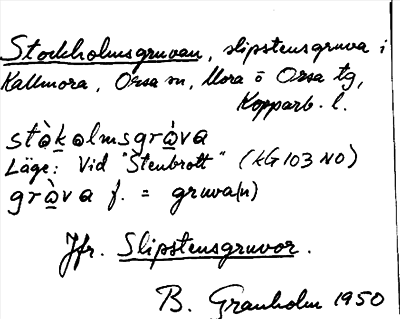 Stockholmsgruvan, slipstensgruva i
Kallmora, Orsa sn, Mora o Orsa tg,
Kopparb. l.
stòkolmsgròva
Läge: Vid "Stenbrott" (KG 103 NO)
gròva f. = gruva(n)
Jfr. Slipstensgruvor.
B. Granholm 1950